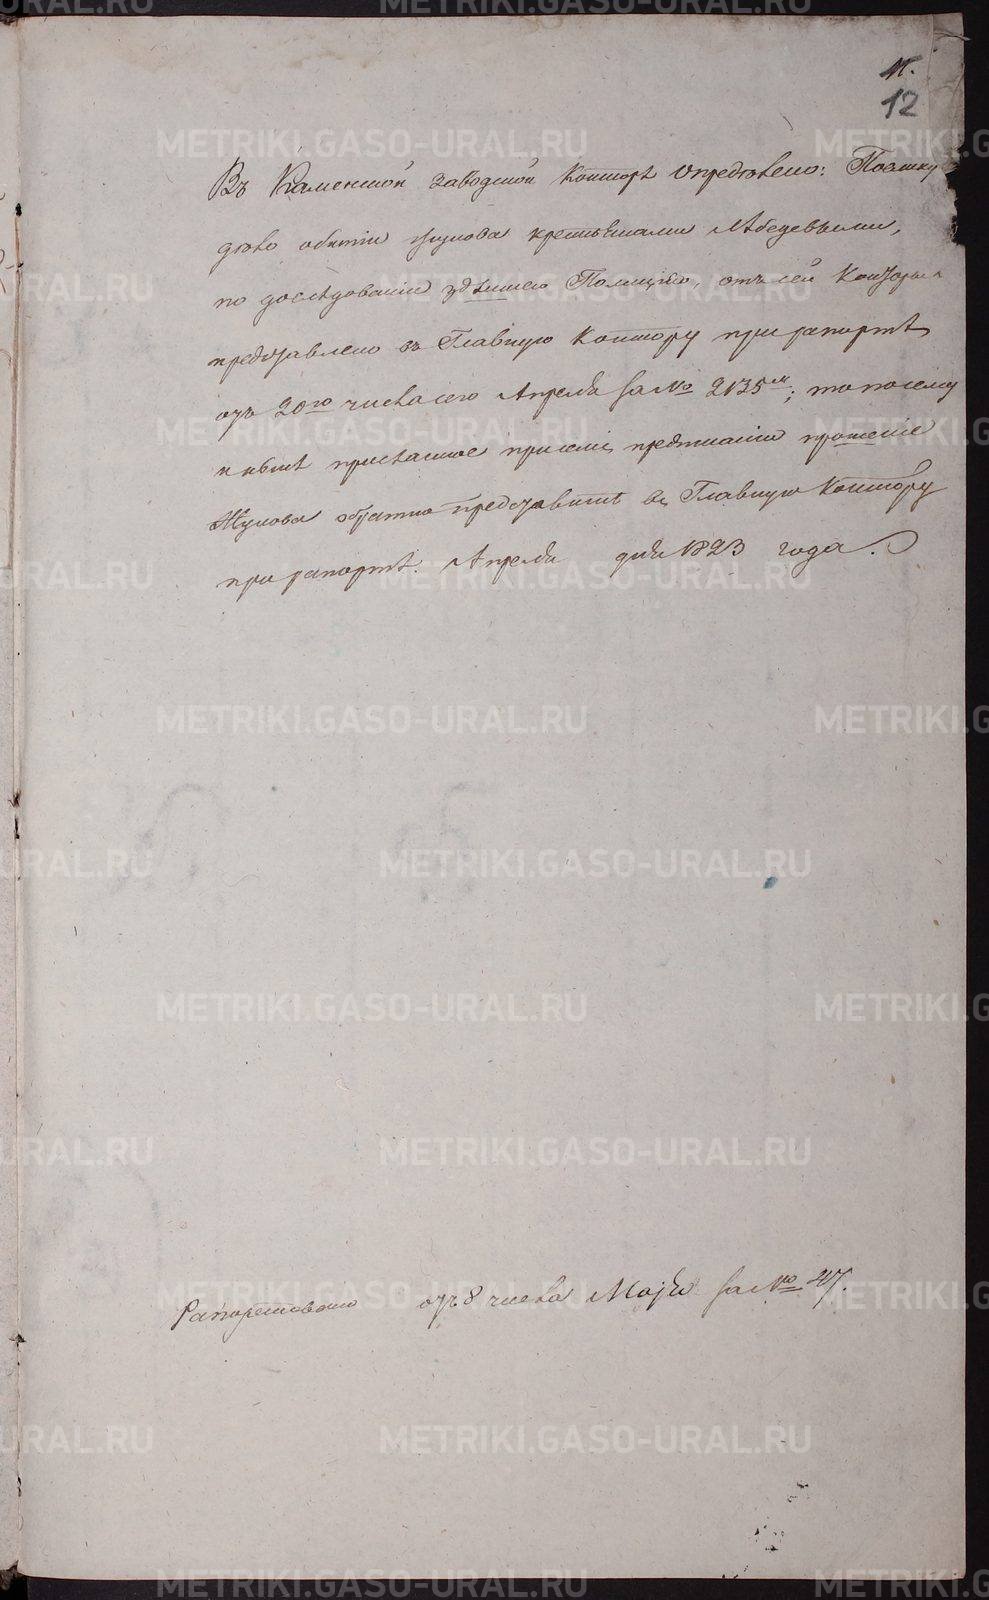 11.
12
Въ Каменской заводской Конторѣ Опредѣлено: Поелику
дѣло обитіи Жукова крестьянами Лебедевыми,
по дослѣдованіи здѣшнею Полиціею, отъ сей Конторы
представлено въ Главную Контору при рапортѣ
отъ 20го числа сего Апрѣля за № 2135м; то посему
и нынѣ присланное при предписаніи прошеніе
Жукова обратно представить въ Главную Контору
при рапортѣ. Апрѣля дня 1823 года.
Рапортовано отъ 8 числа Маія за №
METRIKI.GASO-URAL.RU